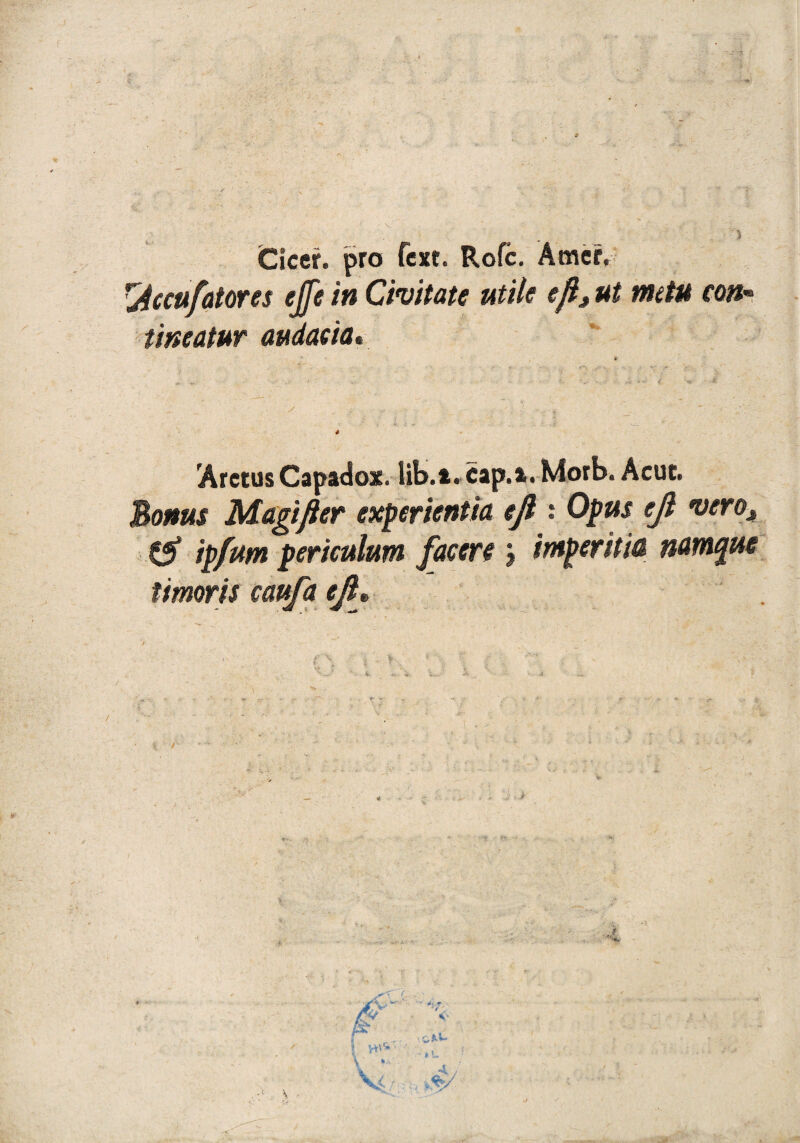 Cicer. pro ſext. Roſc. Amer.
Accuſatores eſſe in Civitate utile eſt, ut metu con-
tineatur audacia.
Aretus Capadox. lib. 2. cap. 2. Morb. Acut.
Bonus Magiſter experientia eſt : Opus eſt vero,
& ipſum periculum facere ; imperitia namque
timoris cauſa eſt.